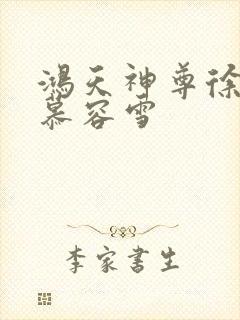 鴻天神尊徐
慕容雪
李家書生